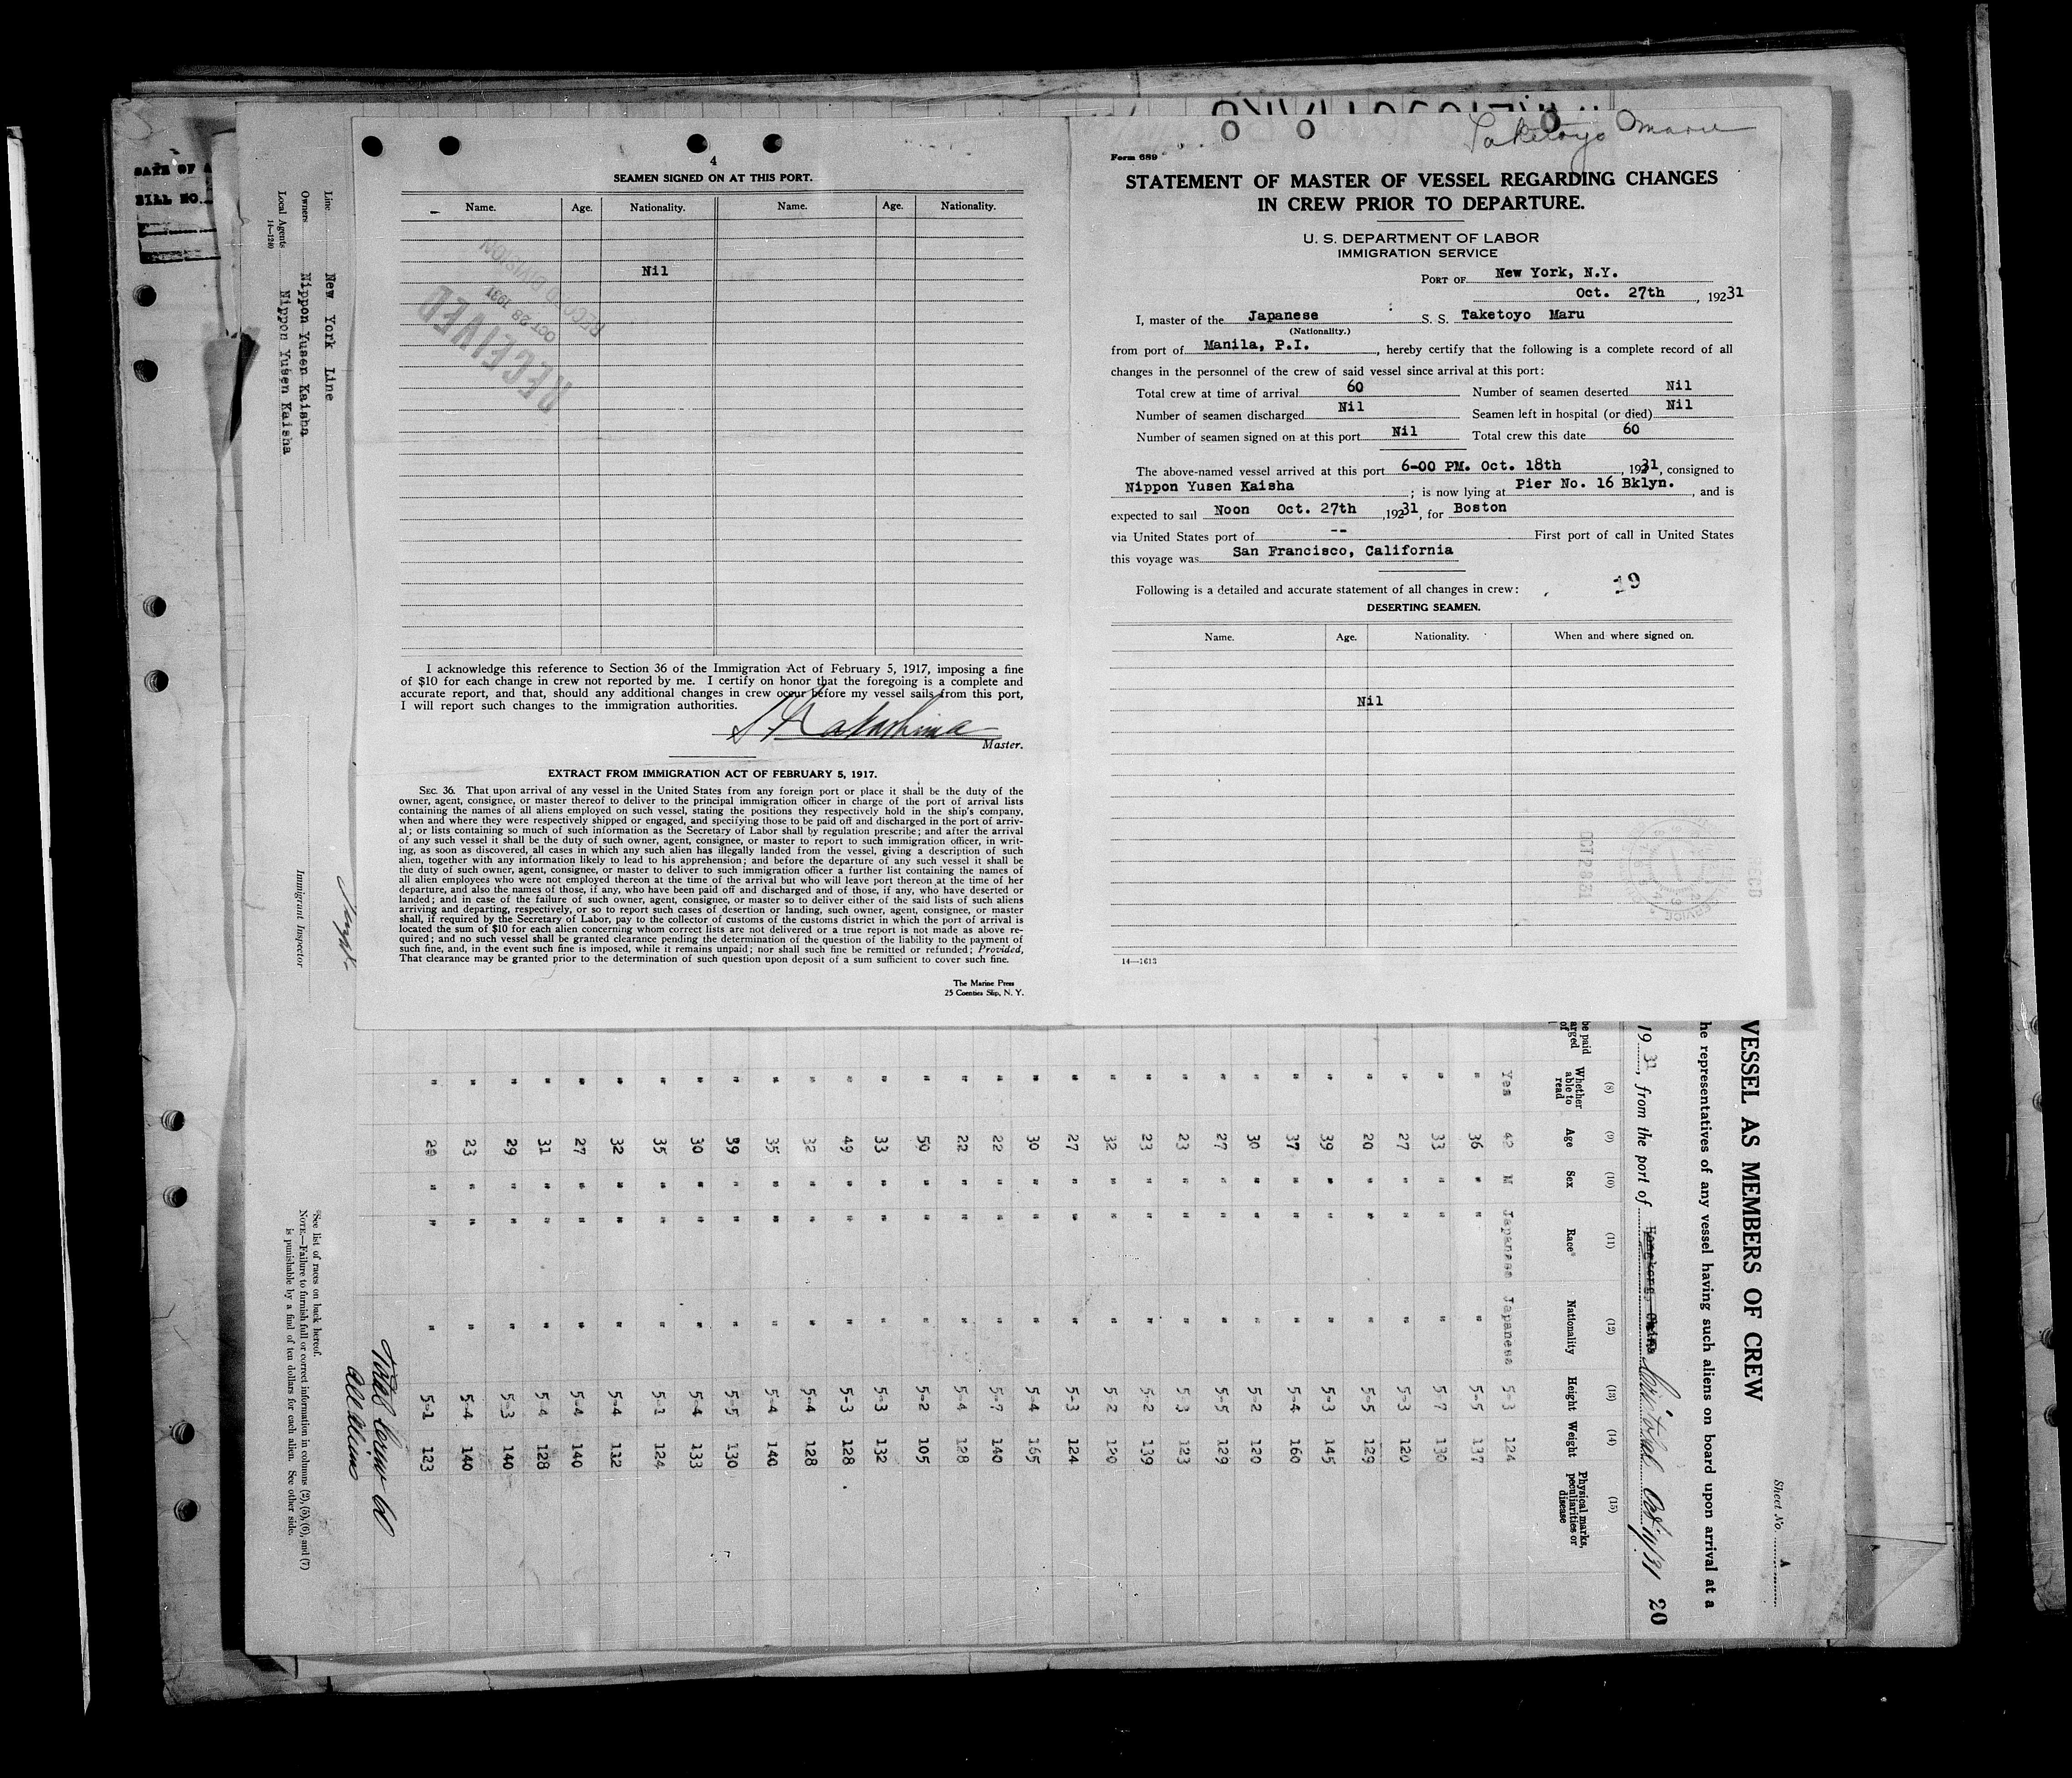 Taketoyo Maru
Form 689
STATEMENT OF MASTER OF VESSEL REGARDING CHANGES
IN CREW PRIOR TO DEPARTURE.
U. S. DEPARTMENT OF LABOR
IMMIGRATION SERVICE
PORT OF New York, N.Y.
Oct. 27th, 19231
I, master of the Japanese S. S. Taketoyo Maru
(Nationality.)
from port of Manila, P.I., hereby certify that the following is a complete record of all
changes in the personnel of the crew of said vessel since arrival at this port:
Total crew at time of arrival 60 Number of seamen deserted Nil
Number of seamen discharged Nil Seamen left in hospital (or died) Nil
Number of seamen signed on at this port Nil Total crew this date 60
The above-named vessel arrived at this port 6-00 PM. Oct. 18th, 1931, consigned to
Nippon Yusen Kaisha; is now lying at Pier No. 16 Bklyn., and is
expected to sail Noon Oct. 27th, 19231, for Boston
via United States port of -- First port of call in United States
this voyage was San Francisco, California
Following is a detailed and accurate statement of all changes in crew:
19
DESERTING SEAMEN.
Name. Age. Nationality. When and where signed on.
Nil
OCT 28 31
14—1613
4
SEAMEN SIGNED ON AT THIS PORT.
Name. Age. Nationality. Name. Age. Nationality.
Nil
RECEIVED
OCT 28 1931
RECORD DIVISION
I acknowledge this reference to Section 36 of the Immigration Act of February 5, 1917, imposing a fine
of $10 for each change in crew not reported by me. I certify on honor that the foregoing is a complete and
accurate report, and that, should any additional changes in crew occur before my vessel sails from this port,
I will report such changes to the immigration authorities.
Master.
EXTRACT FROM IMMIGRATION ACT OF FEBRUARY 5, 1917.
SEC. 36. That upon arrival of any vessel in the United States from any foreign port or place it shall be the duty of the
owner, agent, consignee, or master thereof to deliver to the principal immigration officer in charge of the port of arrival lists
containing the names of all aliens employed on such vessel, stating the positions they respectively hold in the ship's company,
when and where they were respectively shipped or engaged, and specifying those to be paid off and discharged in the port of arriv-
al; or lists containing so much of such information as the Secretary of Labor shall by regulation prescribe; and after the arrival
of any such vessel it shall be the duty of such owner, agent, consignee, or master to report to such immigration officer, in writ-
ing, as soon as discovered, all cases in which any such alien has illegally landed from the vessel, giving a description of such
alien, together with any information likely to lead to his apprehension; and before the departure of any such vessel it shall be
the duty of such owner, agent, consignee, or master to deliver to such immigration officer a further list containing the names of
all alien employees who were not employed thereon at the time of the arrival but who will leave port thereon at the time of her
departure, and also the names of those, if any, who have been paid off and discharged and of those, if any, who have deserted or
landed; and in case of the failure of such owner, agent, consignee, or master so to deliver either of the said lists of such aliens
arriving and departing, respectively, or so to report such cases of desertion or landing, such owner, agent, consignee, or master
shall, if required by the Secretary of Labor, pay to the collector of customs of the customs district in which the port of arrival is
located the sum of $10 for each alien concerning whom correct lists are not delivered or a true report is not made as above re-
quired; and no such vessel shall be granted clearance pending the determination of the question of the liability to the payment of
such fine, and, in the event such fine is imposed, while it remains unpaid; nor shall such fine be remitted or refunded; Provided,
That clearance may be granted prior to the determination of such question upon deposit of a sum sufficient to cover such fine.
The Marine Press
25 Coenties Slip, N. Y.
BILL NO.
Line New York Line
Owners Nippon Yusen Kaisha
Local Agents Nippon Yusen Kaisha
14—1240
Immigrant Inspector
Sheet No. A
VESSEL AS MEMBERS OF CREW
he representatives of any vessel having such aliens on board upon arrival at a
1931, from the port of Hongkong, China Oct 19/31 20
(8) (9) (10) (11) (12) (13) (14) (15)
Whether able to read Age Sex Race* Nationality Height Weight Physical marks, peculiarities or disease
Yes 42 M Japanese Japanese 5-3 124
" 36 " " " 5-5 137
" 33 " " " 5-7 130
" 27 " " " 5-3 120
" 20 " " " 5-5 129
" 39 " " " 5-3 145
" 37 " " " 5-4 160
" 30 " " " 5-2 120
" 27 " " " 5-5 129
" 23 " " " 5-3 123
" 23 " " " 5-2 139
" 32 " " " 5-2 120
" 27 " " " 5-3 124
" 30 " " " 5-4 165
" 22 " " " 5-7 140
" 22 " " " 5-4 128
" 50 " " " 5-2 105
" 33 " " " 5-3 132
" 49 " " " 5-3 128
" 32 " " " 5-4 128
" 35 " " " 5-4 140
" 39 " " " 5-5 130
" 30 " " " 5-4 133
" 35 " " " 5-1 124
" 32 " " " 5-4 132
" 27 " " " 5-4 140
" 31 " " " 5-4 128
" 29 " " " 5-3 140
" 23 " " " 5-4 140
" " " " 5-1 123
All Aliens
*See list of races on back hereof.
NOTE.—Failure to furnish full or correct information in columns (2), (5), (6), and (7)
is punishable by a fine of ten dollars for each alien. See other side.